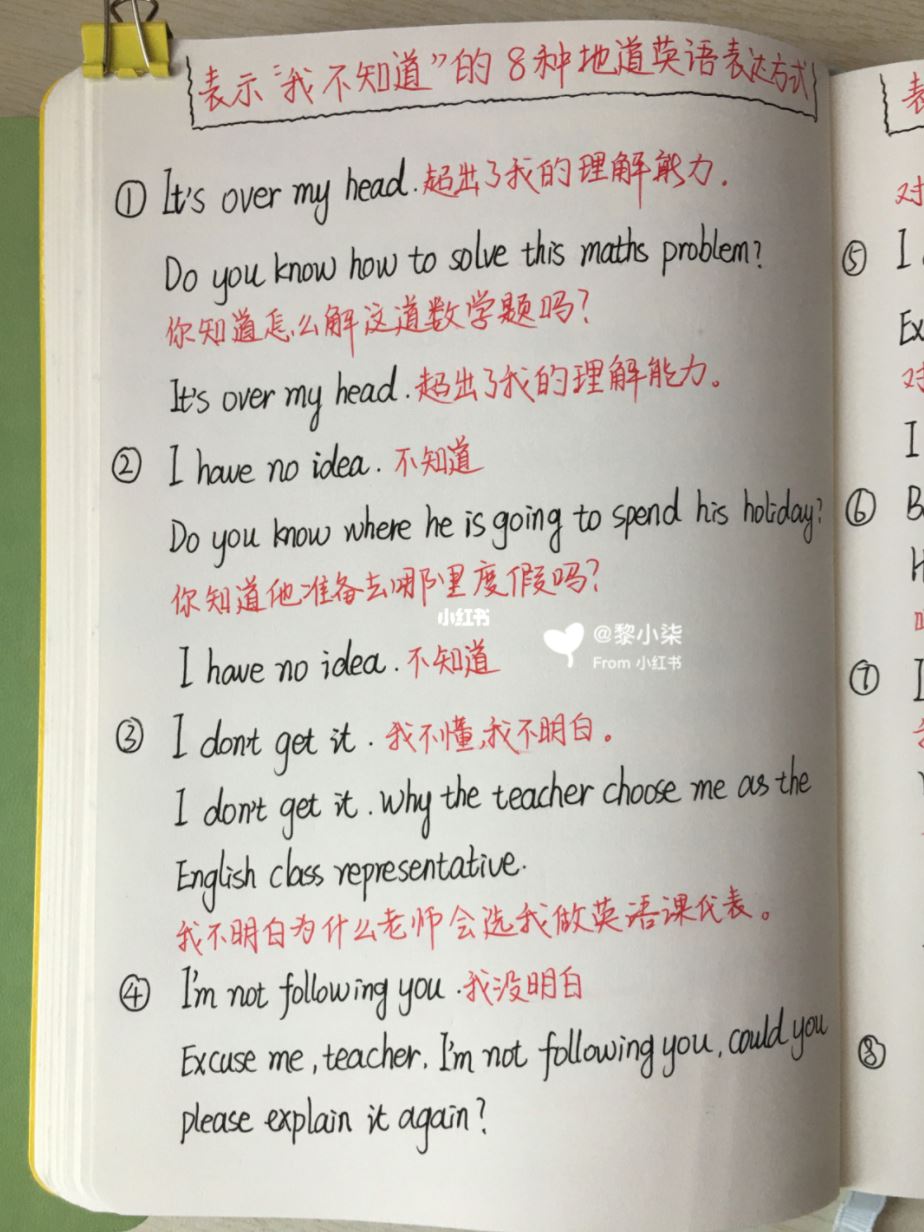 表示“我不知道”的8种地道英语表达方式
① It's over my head. 超出了我的理解能力.
Do you know how to solve this maths problem?
你知道怎么解这道数学题吗?
It's over my head. 超出了我的理解能力。
② I have no idea. 不知道
Do you know where he is going to spend his holiday?
你知道他准备去哪里度假吗?
小红书
@黎小柒
From 小红书
I have no idea. 不知道
③ I don't get it. 我不懂,我不明白。
I don't get it. Why the teacher choose me as the
English class representative.
我不明白为什么老师会选我做英语课代表。
④ I'm not following you. 我没明白
Excuse me, teacher. I'm not following you, could you
please explain it again?
表
对
⑤ I
Ex
对
I
⑥ B
H
⑦ I
⑧